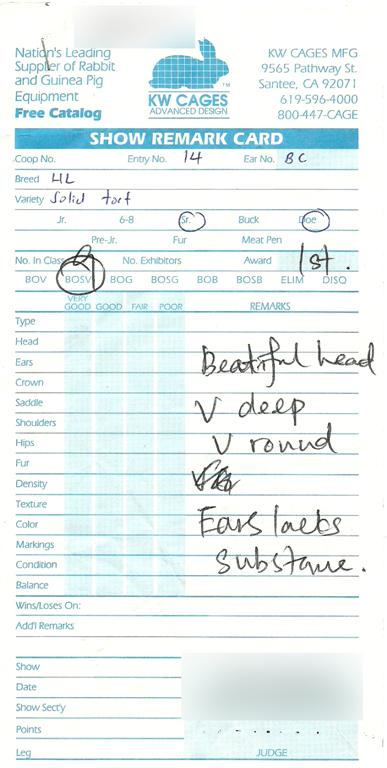 Nation's Leading
Supplier of Rabbit
and Guinea Pig
Equipment
Free Catalog
KW CAGES
ADVANCED DESIGN
TM
KW CAGES MFG
9565 Pathway St.
Santee, CA 92071
619-596-4000
800-447-CAGE
SHOW REMARK CARD
Coop No. Entry No. 14 Ear No. BC
Breed HL
Variety Solid tort
Jr. 6-8 Sr. Buck Doe
Pre-Jr. Fur Meat Pen
No. In Class No. Exhibitors Award 1st.
BOV BOSV BOG BOSG BOB BOSB ELIM DISQ
VERY GOOD GOOD FAIR POOR REMARKS
Type
Head
Ears Beatiful head
Crown
Saddle V deep
Shoulders
Hips V round
Fur
Density
Texture
Color Ears lacks
Markings
Condition substane.
Balance
Wins/Loses On:
Add'l Remarks
Show
Date
Show Sect'y
Points
Leg JUDGE